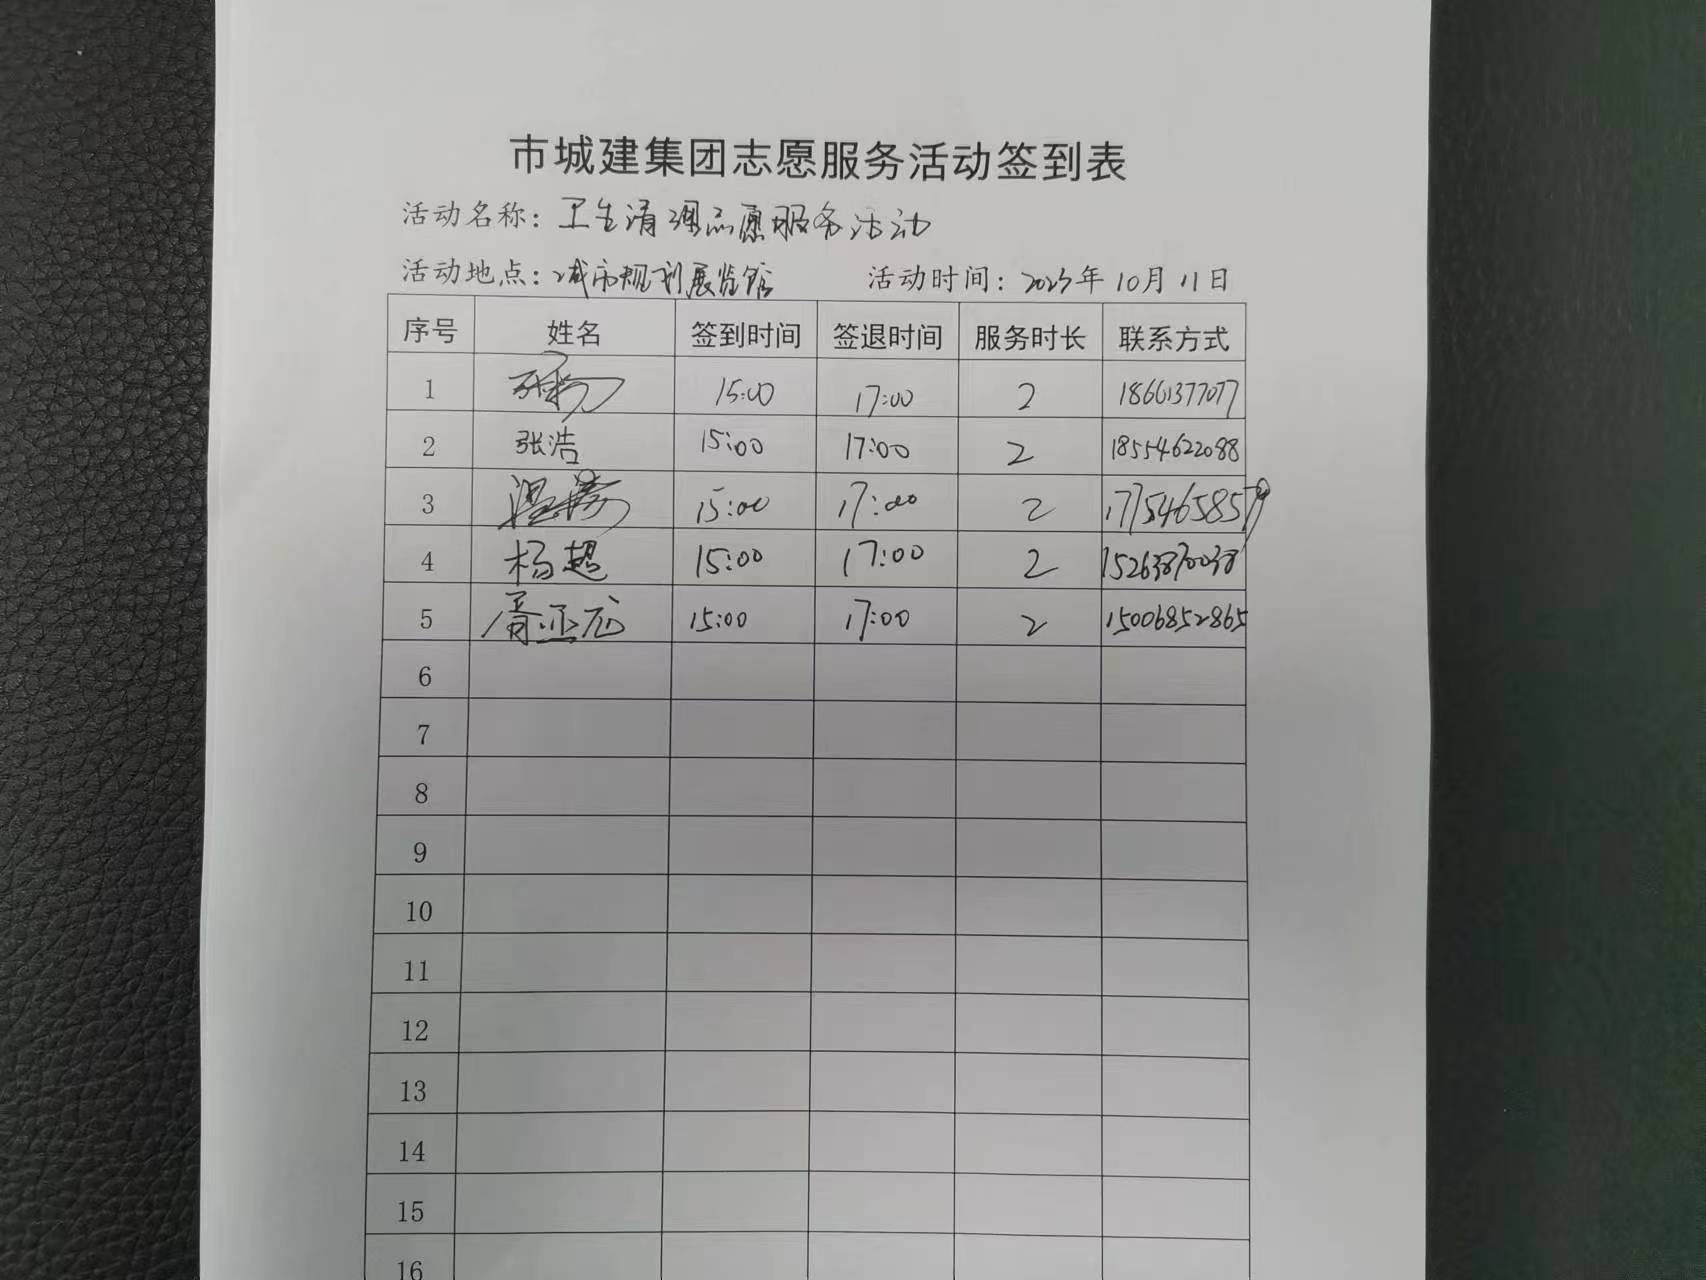 市城建集团志愿服务活动签到表
活动名称：卫生清理志愿服务活动
活动地点：城市规划展览馆 活动时间：2023年10月11日
序号 姓名 签到时间 签退时间 服务时长 联系方式
1 15:00 17:00 2 18661377077
2 张浩 15:00 17:00 2 18554622088
3 15:00 17:00 2 17754658579
4 杨超 15:00 17:00 2
5 胥亚龙 15:00 17:00 2 15006852865
6
7
8
9
10
11
12
13
14
15
16